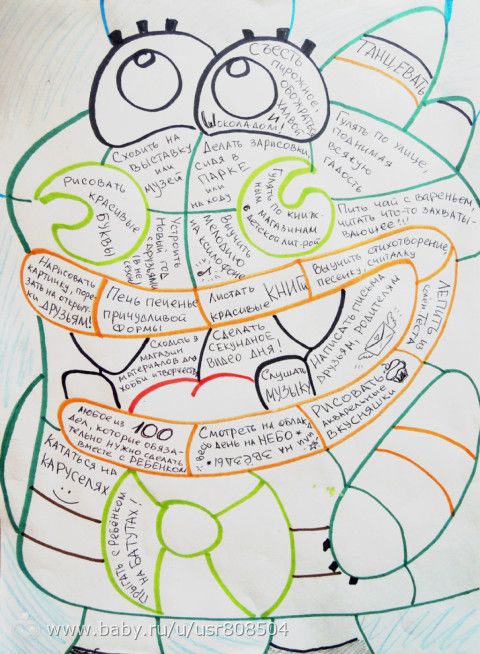 СЪЕСТЬ
пирожное,
ОБОЖРАТЬСЯ
ХАЛВОЙ
И
ШОКОЛАДОМ!
ТАНЦЕВАТЬ
Гулять по улице,
поднимая
всякую
гадость
Сходить на
выставку
или
музей
Делать зарисовки
сидя в
ПАРКЕ
или
на ходу
Рисовать
красивые
БУКВЫ
Гулять по книж-
ным
магазинам
с детской лит-рой
Пить чай с вареньем,
читать что-то захваты-
вающее!!!
Устроить
Новый год
с друзьями
Выучить
мелодию
на
Нарисовать
картинку, поре-
зать на открыт-
ки ДРУЗЬЯМ!
Печь печенье
причудливой
формы
Листать
красивые КНИГИ
Выучить стихотворение,
песенку, считалку
ЛЕПИТЬ из
теста
Сходить в
магазин
материалов для
хобби и творчества
СДЕЛАТЬ
СЕКУНДНОЕ
ВИДЕО ДНЯ!
Слушать
МУЗЫКУ
Написать письма
друзьям, родителям
РИСОВАТЬ
акварельные
ВКУСНЯШКИ
Любое из 100
дел, которые обяза-
тельно нужно сделать
вместе с РЕБЕНКОМ
Смотреть на облака
весь день на НЕБО
на ЗВЁЗДЫ!
КАТАТЬСЯ НА
КАРУСЕЛЯХ
ПРЫГАТЬ с РЕБЁНКОМ
НА БАТУТАХ!
www.baby.ru/u/usr808504